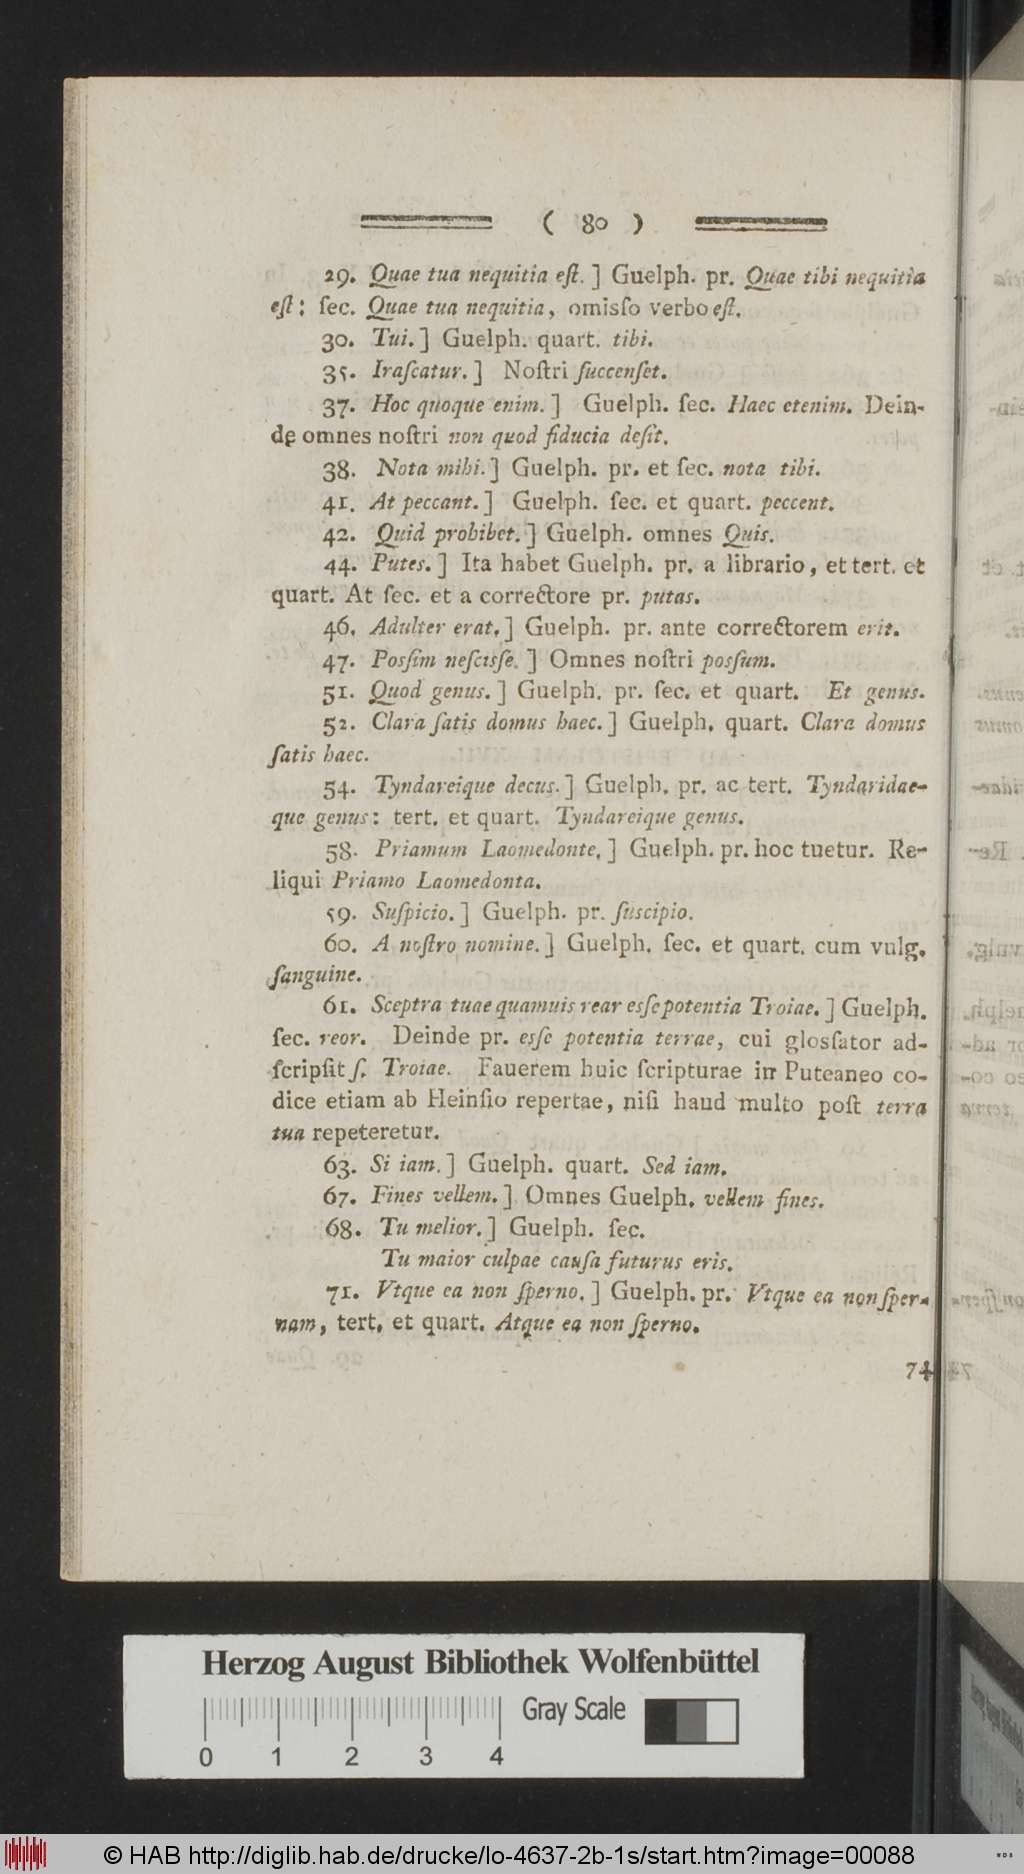 ( 80 )
29. Quae tua nequitia eſt. ] Guelph. pr. Quae tibi nequitia
eſt: ſec. Quae tua nequitia, omiſſo verbo eſt.
30. Tui. ] Guelph. quart. tibi.
35. Iraſcatur. ] Noſtri ſuccenſet.
37. Hoc quoque enim. ] Guelph. ſec. Haec etenim. Dein-
de omnes noſtri non quod fiducia deſit.
38. Nota mihi. ] Guelph. pr. et ſec. nota tibi.
41. At peccant. ] Guelph. ſec. et quart. peccent.
42. Quid prohibet. ] Guelph. omnes Quis.
44. Putes. ] Ita habet Guelph. pr. a librario, et tert. et
quart. At ſec. et a correctore pr. putas.
46. Adulter erat. ] Guelph. pr. ante correctorem erit.
47. Poſſim neſciſſe. ] Omnes noſtri poſſum.
51. Quod genus. ] Guelph. pr. ſec. et quart. Et genus.
52. Clara ſatis domus haec. ] Guelph. quart. Clara domus
ſatis haec.
54. Tyndareique decus. ] Guelph. pr. ac tert. Tyndaridae-
que genus: tert. et quart. Tyndareique genus.
58. Priamum Laomedonte. ] Guelph. pr. hoc tuetur. Re-
liqui Priamo Laomedonta.
59. Suſpicio. ] Guelph. pr. ſuscipio.
60. A noſtro nomine. ] Guelph. ſec. et quart. cum vulg.
ſanguine.
61. Sceptra tuae quamuis rear eſſe potentia Troiae. ] Guelph.
ſec. reor. Deinde pr. eſſe potentia terrae, cui gloſſator ad-
ſcripſit ſ. Troiae. Fauerem huic ſcripturae in Puteaneo co-
dice etiam ab Heinſio repertae, niſi haud multo poſt terra
tua repeteretur.
63. Si iam. ] Guelph. quart. Sed iam.
67. Fines vellem. ] Omnes Guelph. vellem fines.
68. Tu melior. ] Guelph. ſec.
Tu maior culpae cauſa futurus eris.
71. Vtque ea non ſperno. ] Guelph. pr. Vtque ea non ſper-
nam, tert. et quart. Atque ea non ſperno.
74
Herzog August Bibliothek Wolfenbüttel
Gray Scale
0 1 2 3 4
© HAB http://diglib.hab.de/drucke/lo-4637-2b-1s/start.htm?image=00088